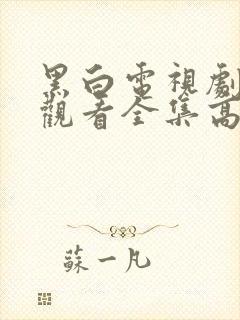 黑白電視劇
觀看全集高
蘇一凡